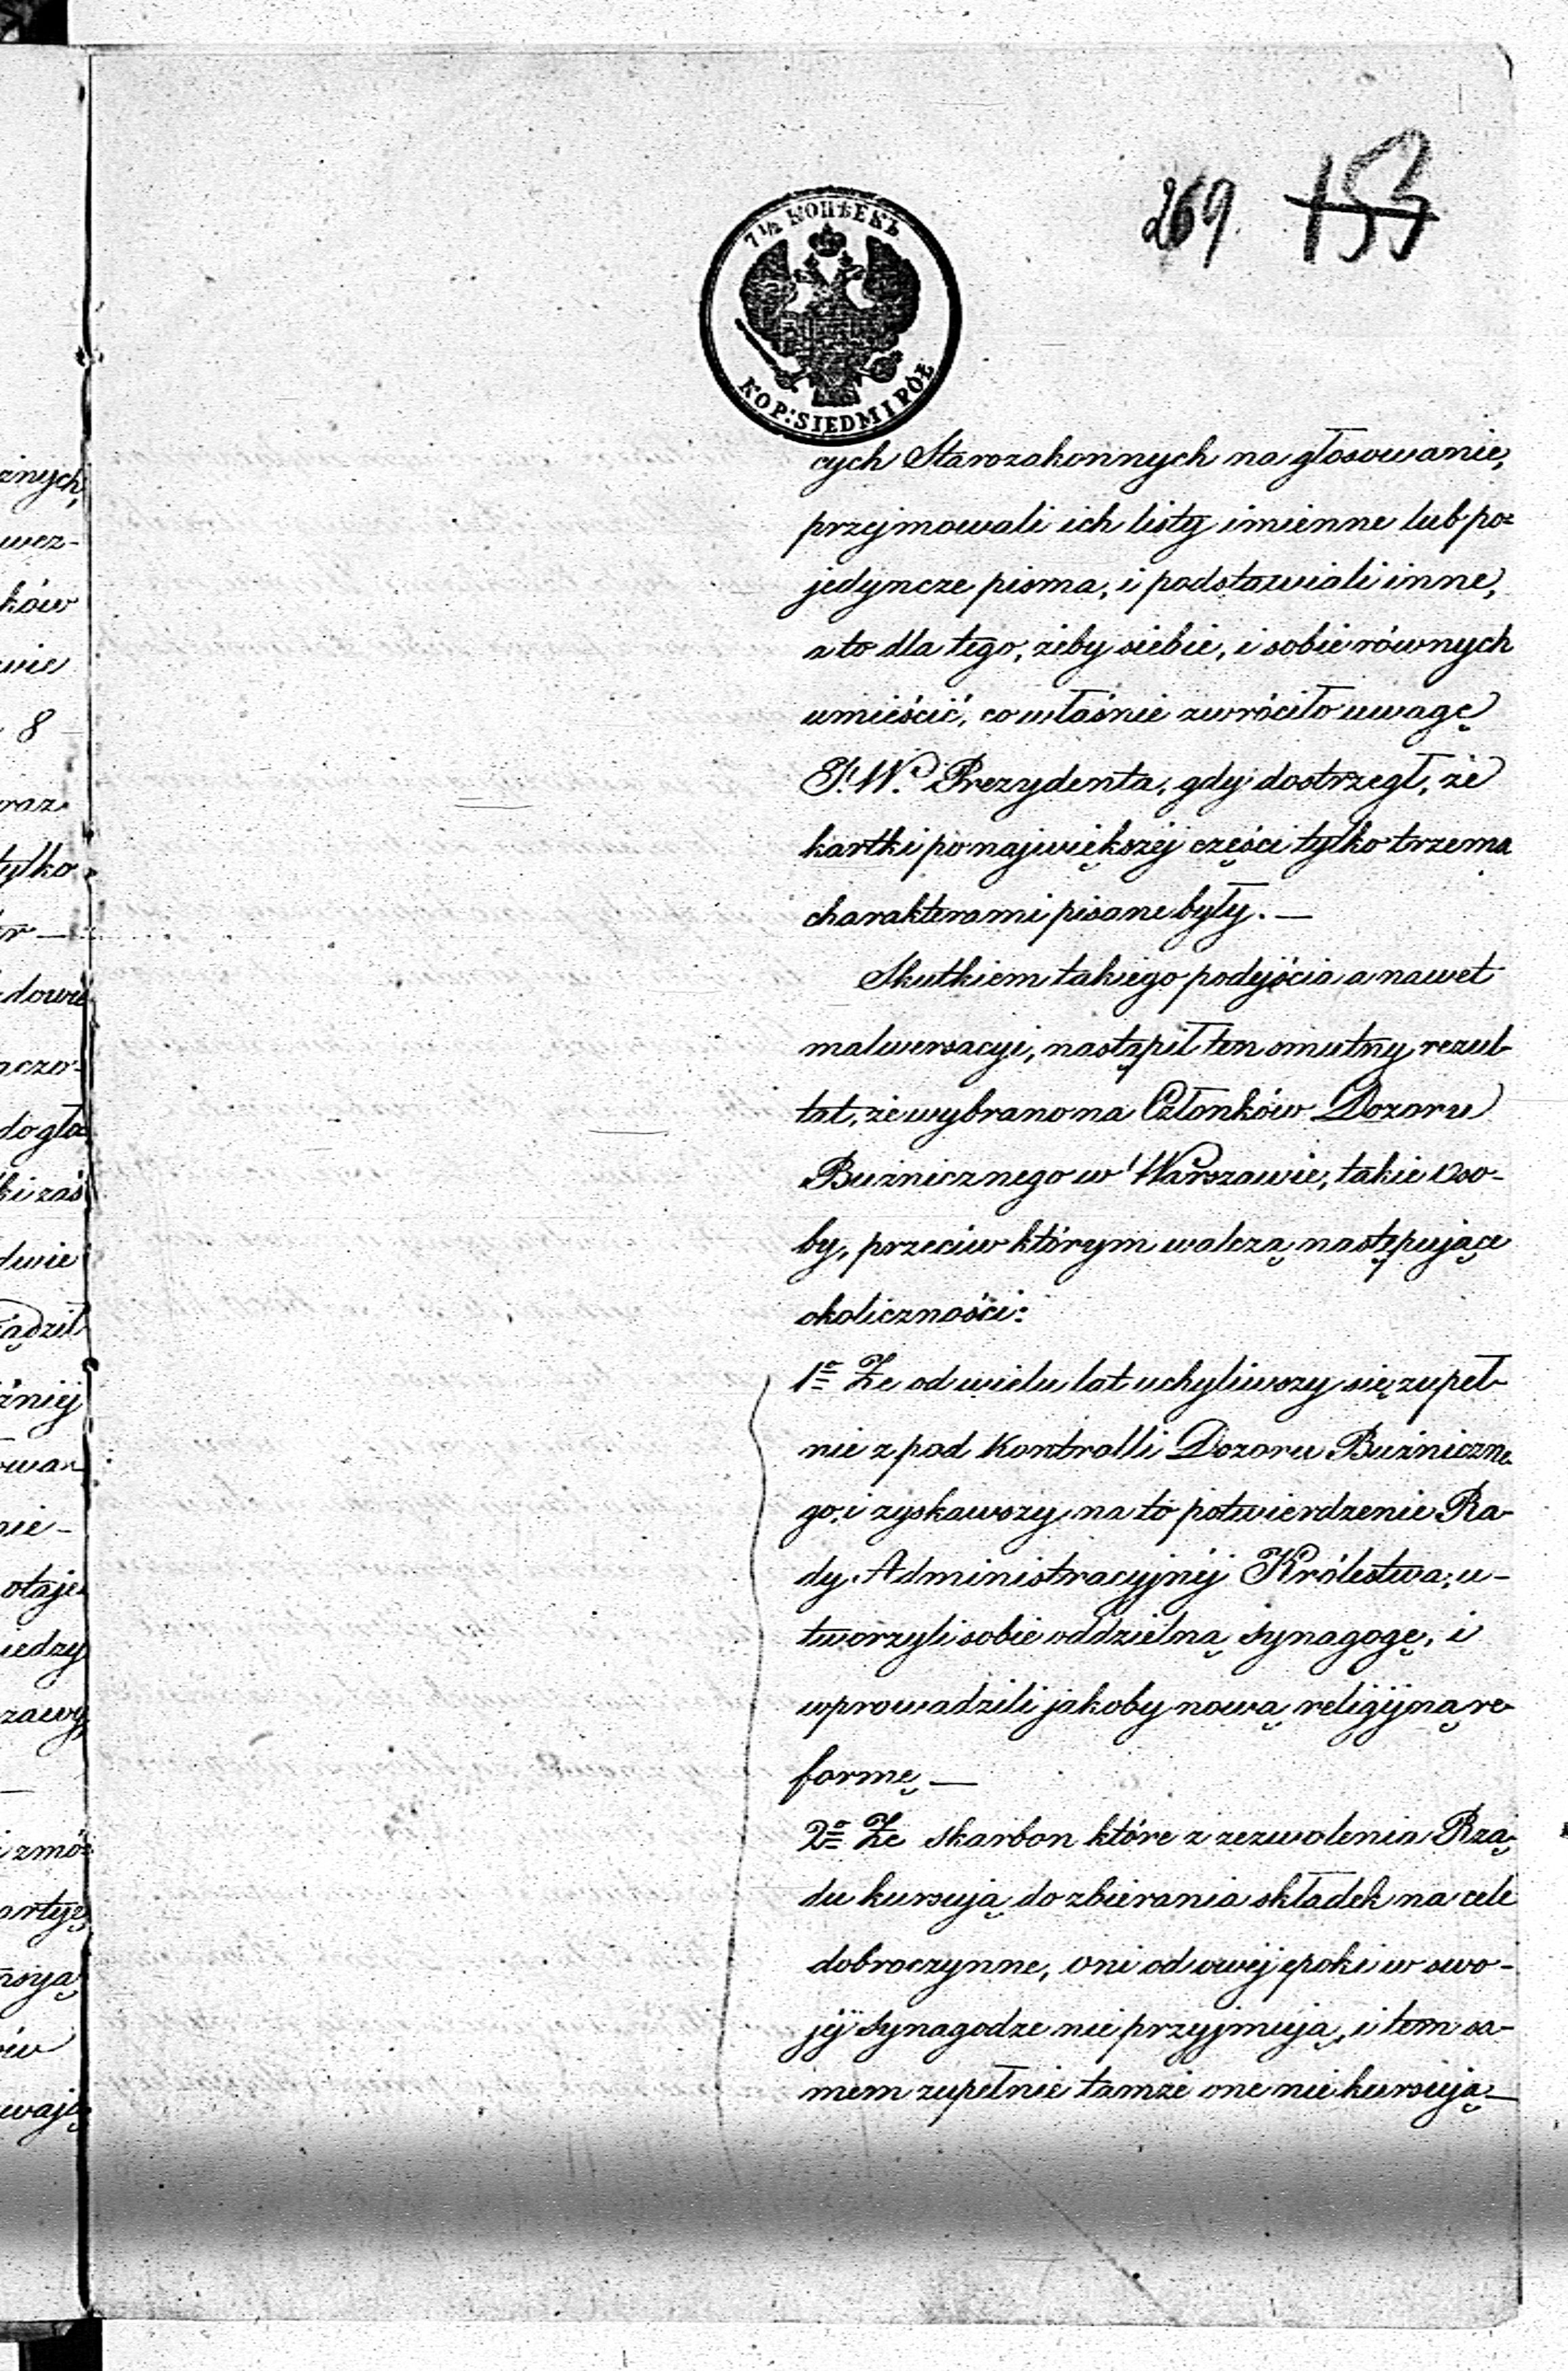 269. 153
7½ КОПѢЕКЪ
KOP: SIEDM I PÓŁ
cych Starozakonnych na głosowanie,
przejmowali ich listy imienne lub po-
jedyncze pisma, i podstawiali inne,
a to dla tego, żeby siebie, i sobie równych
umieścić, co właśnie zwróciło uwagę
J. W. Prezydenta, gdy dostrzegł, że
kartki po największéj części tylko trzema
charakterami pisane były. —
Skutkiem takiego podejścia a nawet
malwersacyi, nastąpił ten smutny rezul-
tat, że wybrano na Członków Dozoru
Bużnicznego w Warszawie, takie oso-
by, przeciw którym walczą następujące
okoliczności:
1o Że od wielu lat uchyliwszy się zupeł-
nie z pod Kontrolli Dozoru Bużniczne-
go, i zyskawszy na to potwierdzenie Ra-
dy Administracyjnéj Królestwa, u-
tworzyli sobie oddzielną synagogę, i
wprowadzili jakoby nową religijną re-
formę —
2o Że skarbon które z zezwolenia Rzą-
du kursują do zbierania składek na cele
dobroczynne, oni od owéj epoki w swo-
jéj synagodze nie przyjmują, i tem sa-
mem zupełnie tamże one nie kursują —
żnych,
wez-
ków
wie
8
raz
tylko
dowie
czo-
do gło
ki zaś
dwie
ądził
źniej
nie-
otaje
iedzy
zmó-
artyę
ów
wają